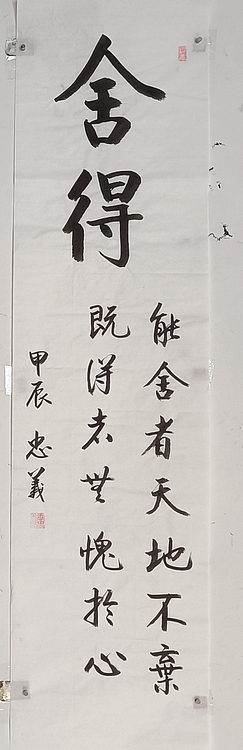 舍得
能舍者天地不棄
既得者無愧於心
甲辰 忠義